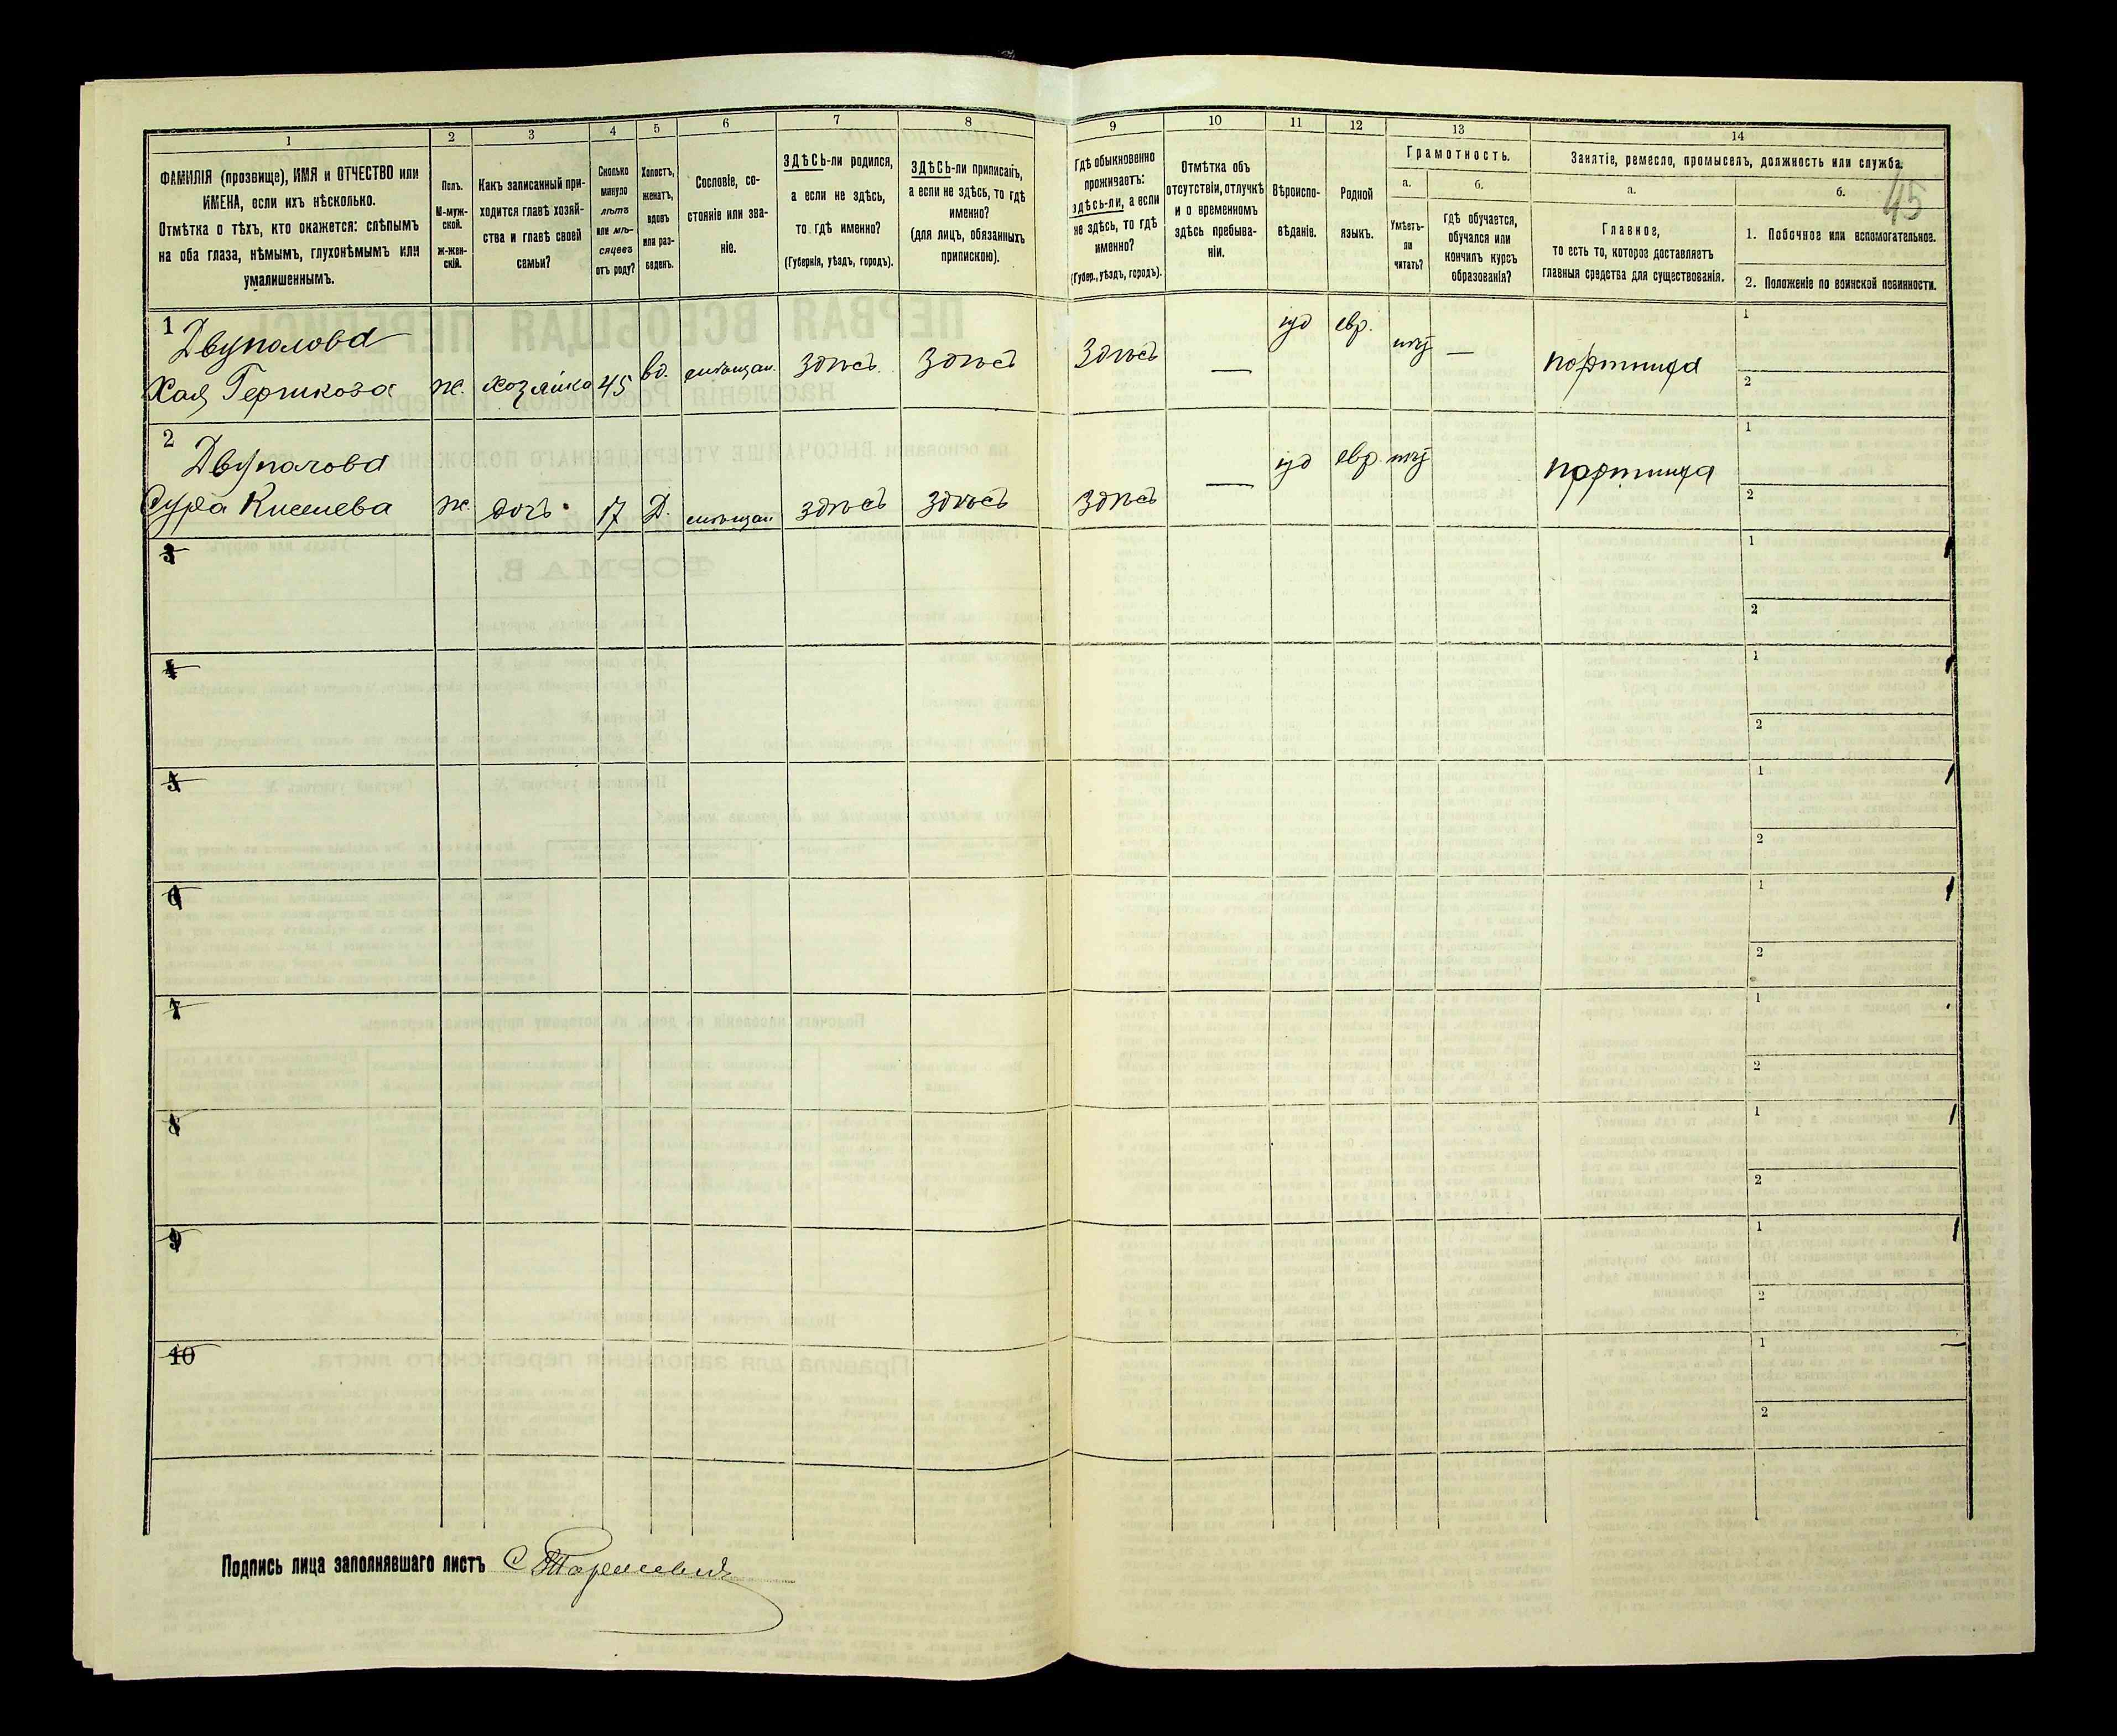 1 2 3 4 5 6 7 8 9 10 11 12 13 14
ФАМИЛІЯ (прозвище), ИМЯ и ОТЧЕСТВО или
ИМЕНА, если ихъ нѣсколько.
Отмѣтка о тѣхъ, кто окажется: слѣпымъ
на оба глаза, нѣмымъ, глухонѣмымъ или
умалишеннымъ.
Полъ.
М-муж-
ской.
ж-жен-
скій.
Какъ записанный при-
ходится главѣ хозяй-
ства и главѣ своей
семьи?
Сколько
минуло
лѣтъ
или мѣ-
сяцевъ
отъ роду?
Холостъ,
женатъ,
вдовъ
или раз-
веденъ.
Сословіе, со-
стояніе или зва-
ніе.
ЗДѢСЬ-ли родился,
а если не здѣсь,
то гдѣ именно?
(Губернія, уѣздъ, городъ).
ЗДѢСЬ-ли приписанъ,
а если не здѣсь, то гдѣ
именно?
(для лицъ, обязанныхъ
припискою).
Гдѣ обыкновенно
проживаетъ:
здѣсь-ли, а если
не здѣсь, то гдѣ
именно?
(Губер., уѣздъ, городъ).
Отмѣтка объ
отсутствіи, отлучкѣ
и о временномъ
здѣсь пребыва-
ніи.
Вѣроиспо-
вѣданіе.
Родной
языкъ.
Грамотность.
а.
Умѣетъ-
ли
читать?
б.
гдѣ обучается,
обучался или
кончилъ курсъ
образованія?
Занятіе, ремесло, промыселъ, должность или служба.
а.
Главное,
то есть то, которое доставляетъ
главныя средства для существованія.
б.
45
1. Побочное или вспомогательное.
2. Положеніе по воинской повинности.
1 Двуполова
Хая Гершкова ж. хозяйка 45 вд. мѣщан. здѣсь здѣсь здѣсь — іуд евр. — портниха
1
2
2 Двуполова
Сура Киселева ж. дочь 17 Д. мѣщан здѣсь здѣсь здѣсь — іуд евр. портниха
1
2
3
1
2
4
1
2
5
1
2
6
1
2
7
1
2
8
1
2
9
1
2
10
1
2
Подпись лица заполнявшаго листъ